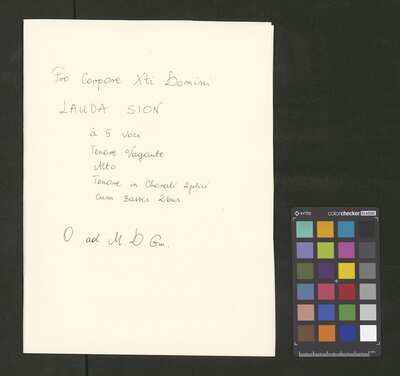 Pro Corpore Xti Domini
LAUDA SION
à 5 voci
Tenore Vagante
Alto
Tenore in Chorali 2plici
Cum Bassis 2bus
O ad M D Gm.
x-rite
colorchecker CLASSIC